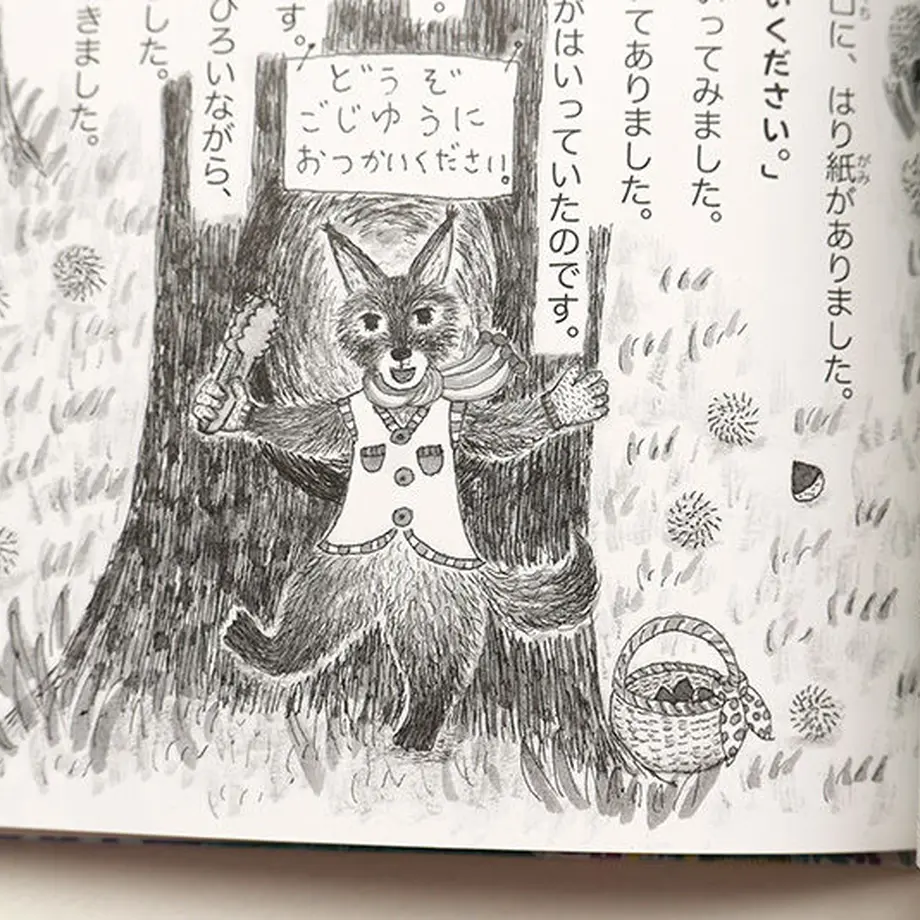 口に、はり紙がありました。
いください。」
ってみました。
てありました。
がはいっていたのです。
。
す。
ひろいながら、
した。
きました。
どうぞ
ごじゆうに
おつかいください。